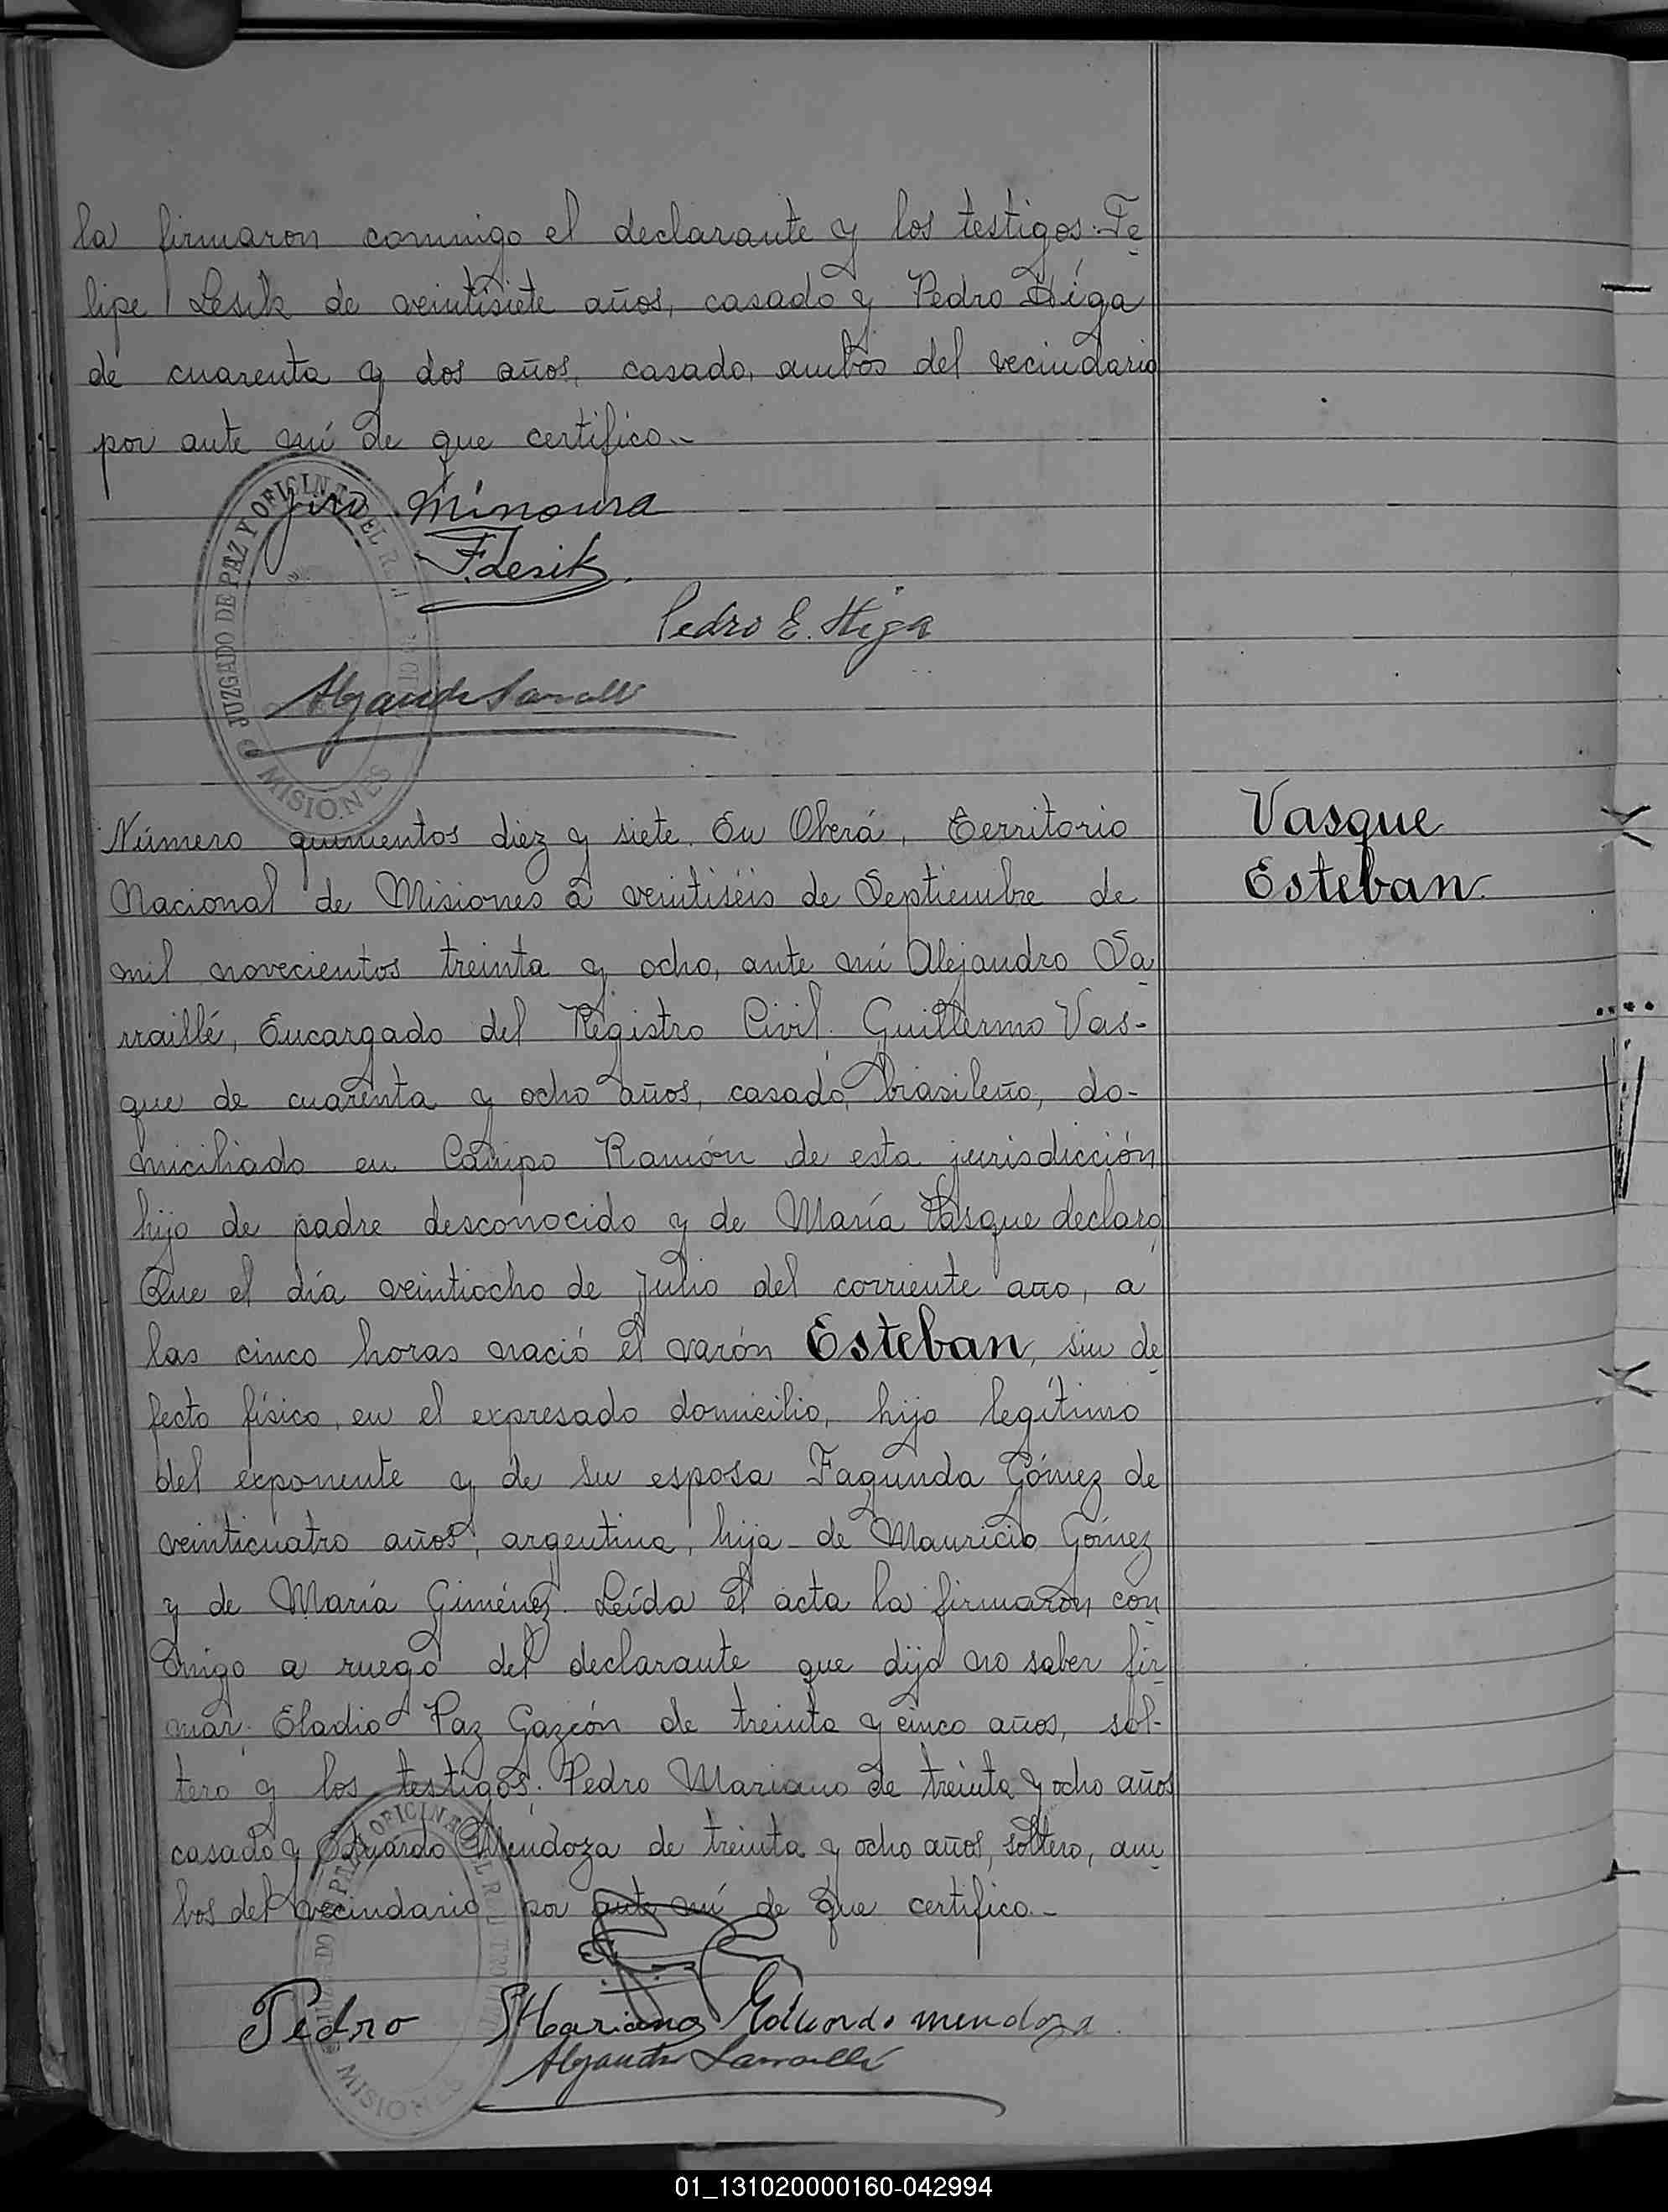 la firmaron conmigo el declarante y los testigos: Fe
lipe Lesik de veintisiete años, casado y Pedro Higa
de cuarenta y dos años, casado, ambos del vecindario
por ante mí de que certifico.-
Jiro Minoura
F. Lesik.
Pedro E. Higa
JUZGADO DE PAZ Y OFICINA DEL R.
MISIONES
Número quinientos diez y siete. En Oberá, Territorio
Vasque
Nacional de Misiones a veintiséis de Septiembre de
Esteban.
mil novecientos treinta y ocho, ante mí Alejandro Sa
rraillé, Encargado del Registro Civil. Guillermo Vas-
que de cuarenta y ocho años, casado, brasileño, do-
miciliado en Campo Ramón de esta jurisdicción
hijo de padre desconocido y de María Vasque declaró
Que el día veintiocho de Julio del corriente año, a
las cinco horas nació el varón Esteban, sin de
fecto físico, en el expresado domicilio, hijo legítimo
del exponente y de su esposa Fagunda Gómez de
veinticuatro años, argentina, hija de Mauricio Gómez
y de María Giménez. Leída el acta la firmaron con
migo a ruego del declarante que dijo no saber fir
mar: Eladio Paz Gazcón de treinta y cinco años, sol-
tero y los testigos: Pedro Mariano de treinta y ocho años
casado y Eduardo Mendoza de treinta y ocho años, soltero, am
bos del vecindario por ante mí de que certifico.-
Pedro Mariano Eduardo Mendoza
Alejandro Sarraillé
MISIONES
01_131020000160-042994